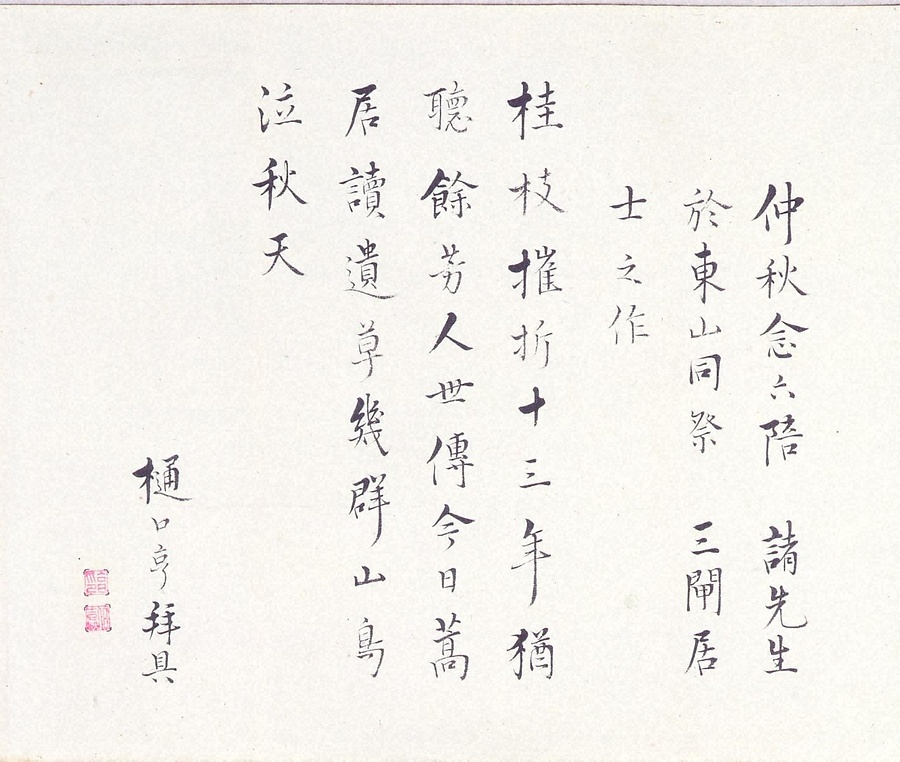 仲秋念六陪　諸先生
於東山同祭　三閘居
士之作
桂枝摧折十三年猶
聴餘芳人世傳今日蒿
居讀遺草幾群山鳥
泣秋天
樋口亨拜具